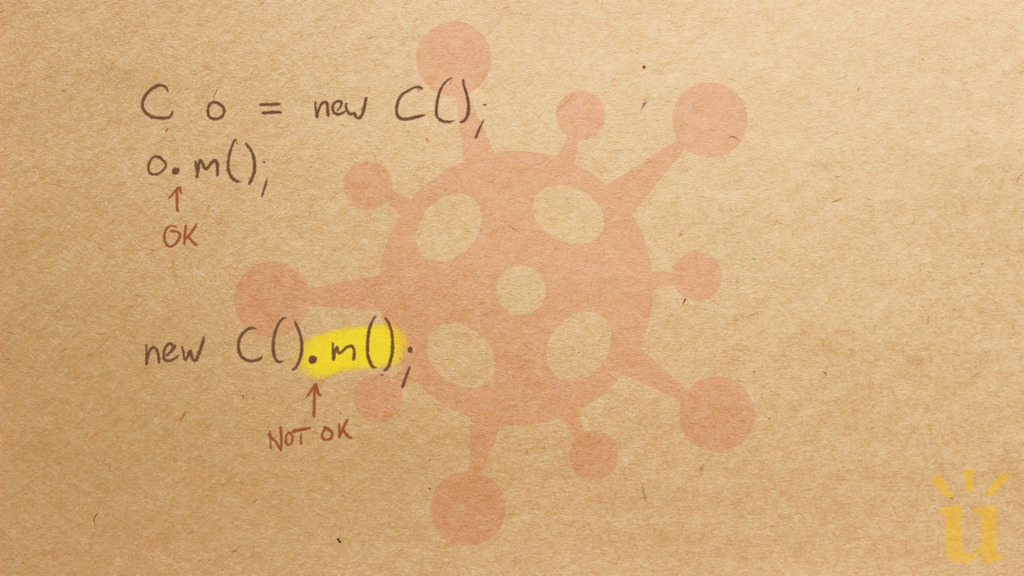 C o = new C();
o.m();
↑
OK
new C().m();
↑
NOT OK
u